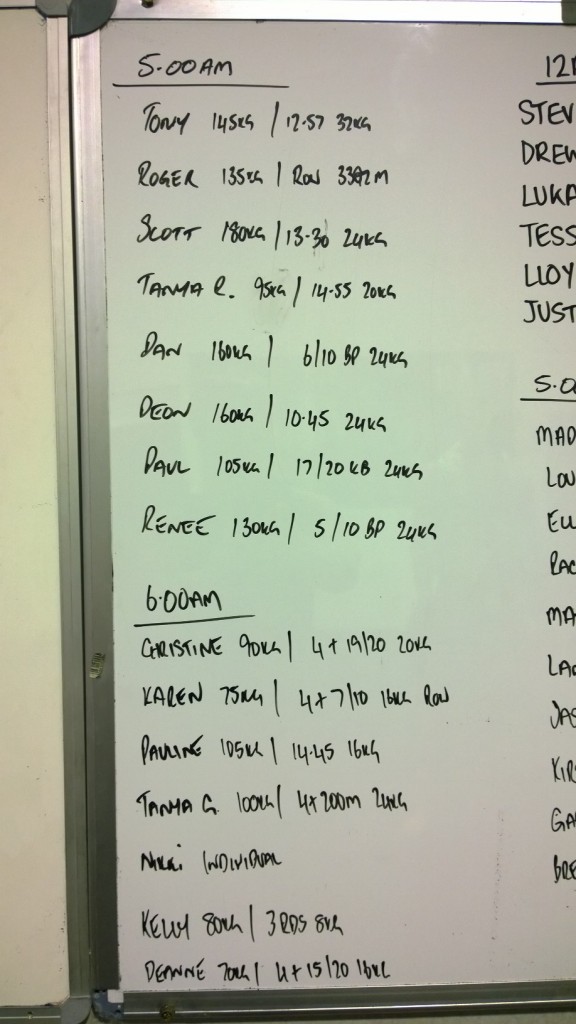 5.00AM
TONY 145KG / 12.57 32KG
ROGER 135KG / ROW 3392M
SCOTT 180KG / 13-30 24KG
TANYA R. 95KG / 14-55 20KG
DAN 160KG / 6/10 BP 24KG
DEON 160KG / 10.45 24KG
PAUL 105KG / 17/20 KB 24KG
RENEE 130KG / 5/10 BP 24KG
6.00AM
CHRISTINE 90KG / 4 + 19/20 20KG
KAREN 75KG / 4+7/10 16KG ROW
PAULINE 105KG / 14.45 16KG
TANYA G. 100KG / 4+200M 24KG
NIKKI INDIVIDUAL
KELLY 80KG / 3 RDS 8KG
DEANNE 70KG / 4+15/20 16KG
12
STEV
DREW
LUKA
TESS
LLOY
JUST
5.0
MAD
LOU
RAC
MA
JAS
KIR
GA
BRE